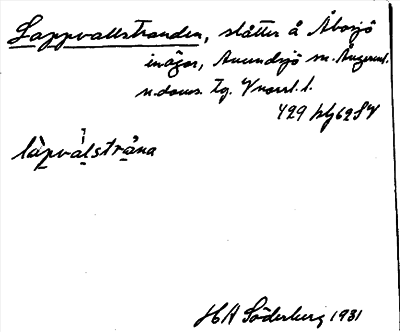 Lappvallstranden, slåtter å Åbosjö
inägor, Anundsjö sn. Ångerml.
n. doms. Tg. Vnorrl. l.
429 hlj62SV
làpvàlstràna
HA Söderberg 1931